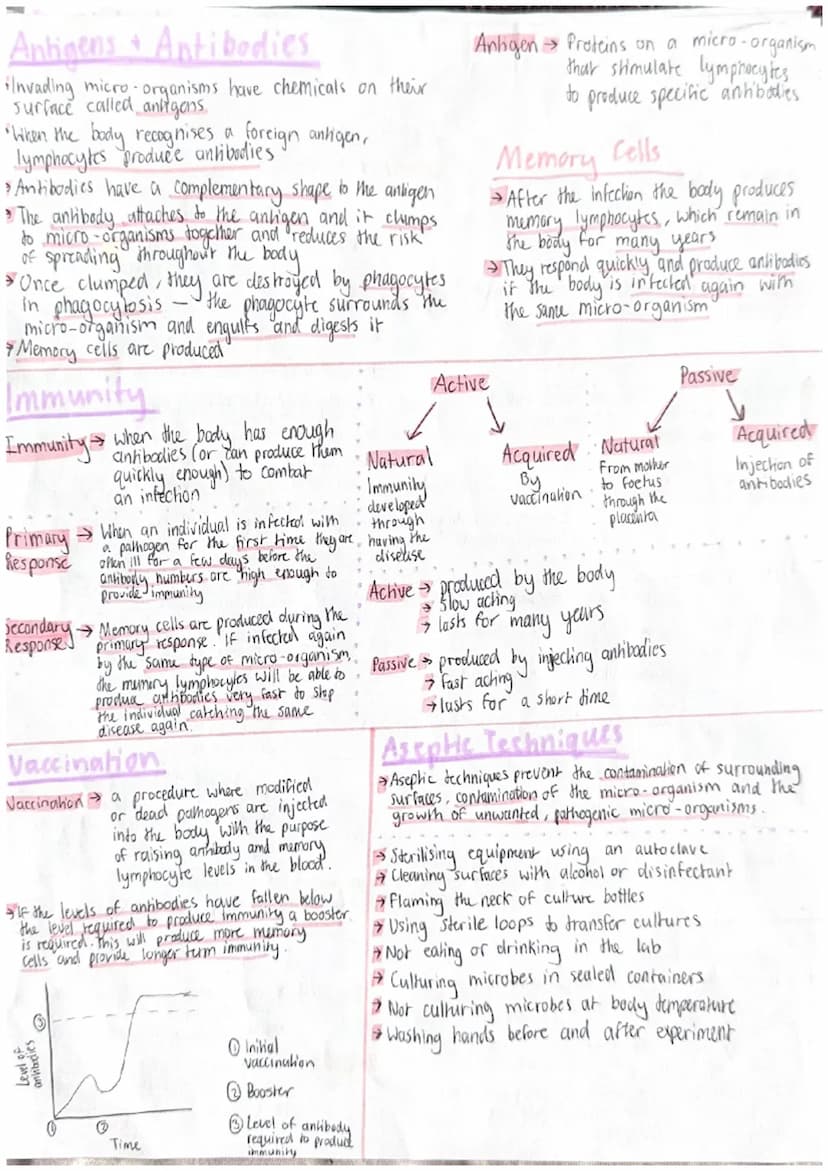 Antigens + Antibodies
Invading micro-organisms have chemicals on their
surface called antigens
When the body recognises a foreign antigen,
lymphocytes produce antibodies
Antibodies have a complementary shape to the antigen
The antibody attaches to the antigen and it clumps
to micro-organisms together and reduces the risk
of spreading throughout the body
Once clumped, they are destroyed by phagocytes
in phagocytosis — the phagocyte surrounds the
micro-organism and engulfs and digests it
Memory cells are produced
Antigen → Proteins on a micro-organism
that stimulate lymphocytes
to produce specific antibodies
Memory Cells
→ After the infection the body produces
memory lymphocytes, which remain in
the body for many years
→ They respond quickly and produce antibodies
if the body is infected again with
the same micro-organism
Immunity
Immunity → when the body has enough
antibodies (or can produce them
quickly enough) to combat
an infection
Primary Response → When an individual is infected with
a pathogen for the first time they are
often ill for a few days before the
antibody numbers are high enough to
provide immunity
Secondary Response → Memory cells are produced during the
primary response. If infected again
by the same type of micro-organism,
the memory lymphocytes will be able to
produce antibodies very fast to stop
the individual catching the same
disease again.
Active
Natural
Immunity
developed
through
having the
disease
Acquired
By
vaccination
Passive
Natural
From mother
to foetus
through the
placenta
Acquired
Injection of
antibodies
Active → produced by the body
→ slow acting
→ lasts for many years
Passive → produced by injecting antibodies
→ fast acting
→ lasts for a short time
Vaccination
Vaccination → a procedure where modified
or dead pathogens are injected
into the body with the purpose
of raising antibody and memory
lymphocyte levels in the blood.
→ If the levels of antibodies have fallen below
the level required to produce immunity a booster
is required. This will produce more memory
cells and provide longer term immunity.
③
Level of
antibodies
① ②
Time
① Initial
vaccination
② Booster
③ Level of antibody
required to produce
immunity
Aseptic Techniques
→ Aseptic techniques prevent the contamination of surrounding
surfaces, contamination of the micro-organism and the
growth of unwanted, pathogenic micro-organisms.
→ Sterilising equipment using an autoclave
→ Cleaning surfaces with alcohol or disinfectant
→ Flaming the neck of culture bottles
→ Using sterile loops to transfer cultures
→ Not eating or drinking in the lab
→ Culturing microbes in sealed containers
→ Not culturing microbes at body temperature
→ Washing hands before and after experiment